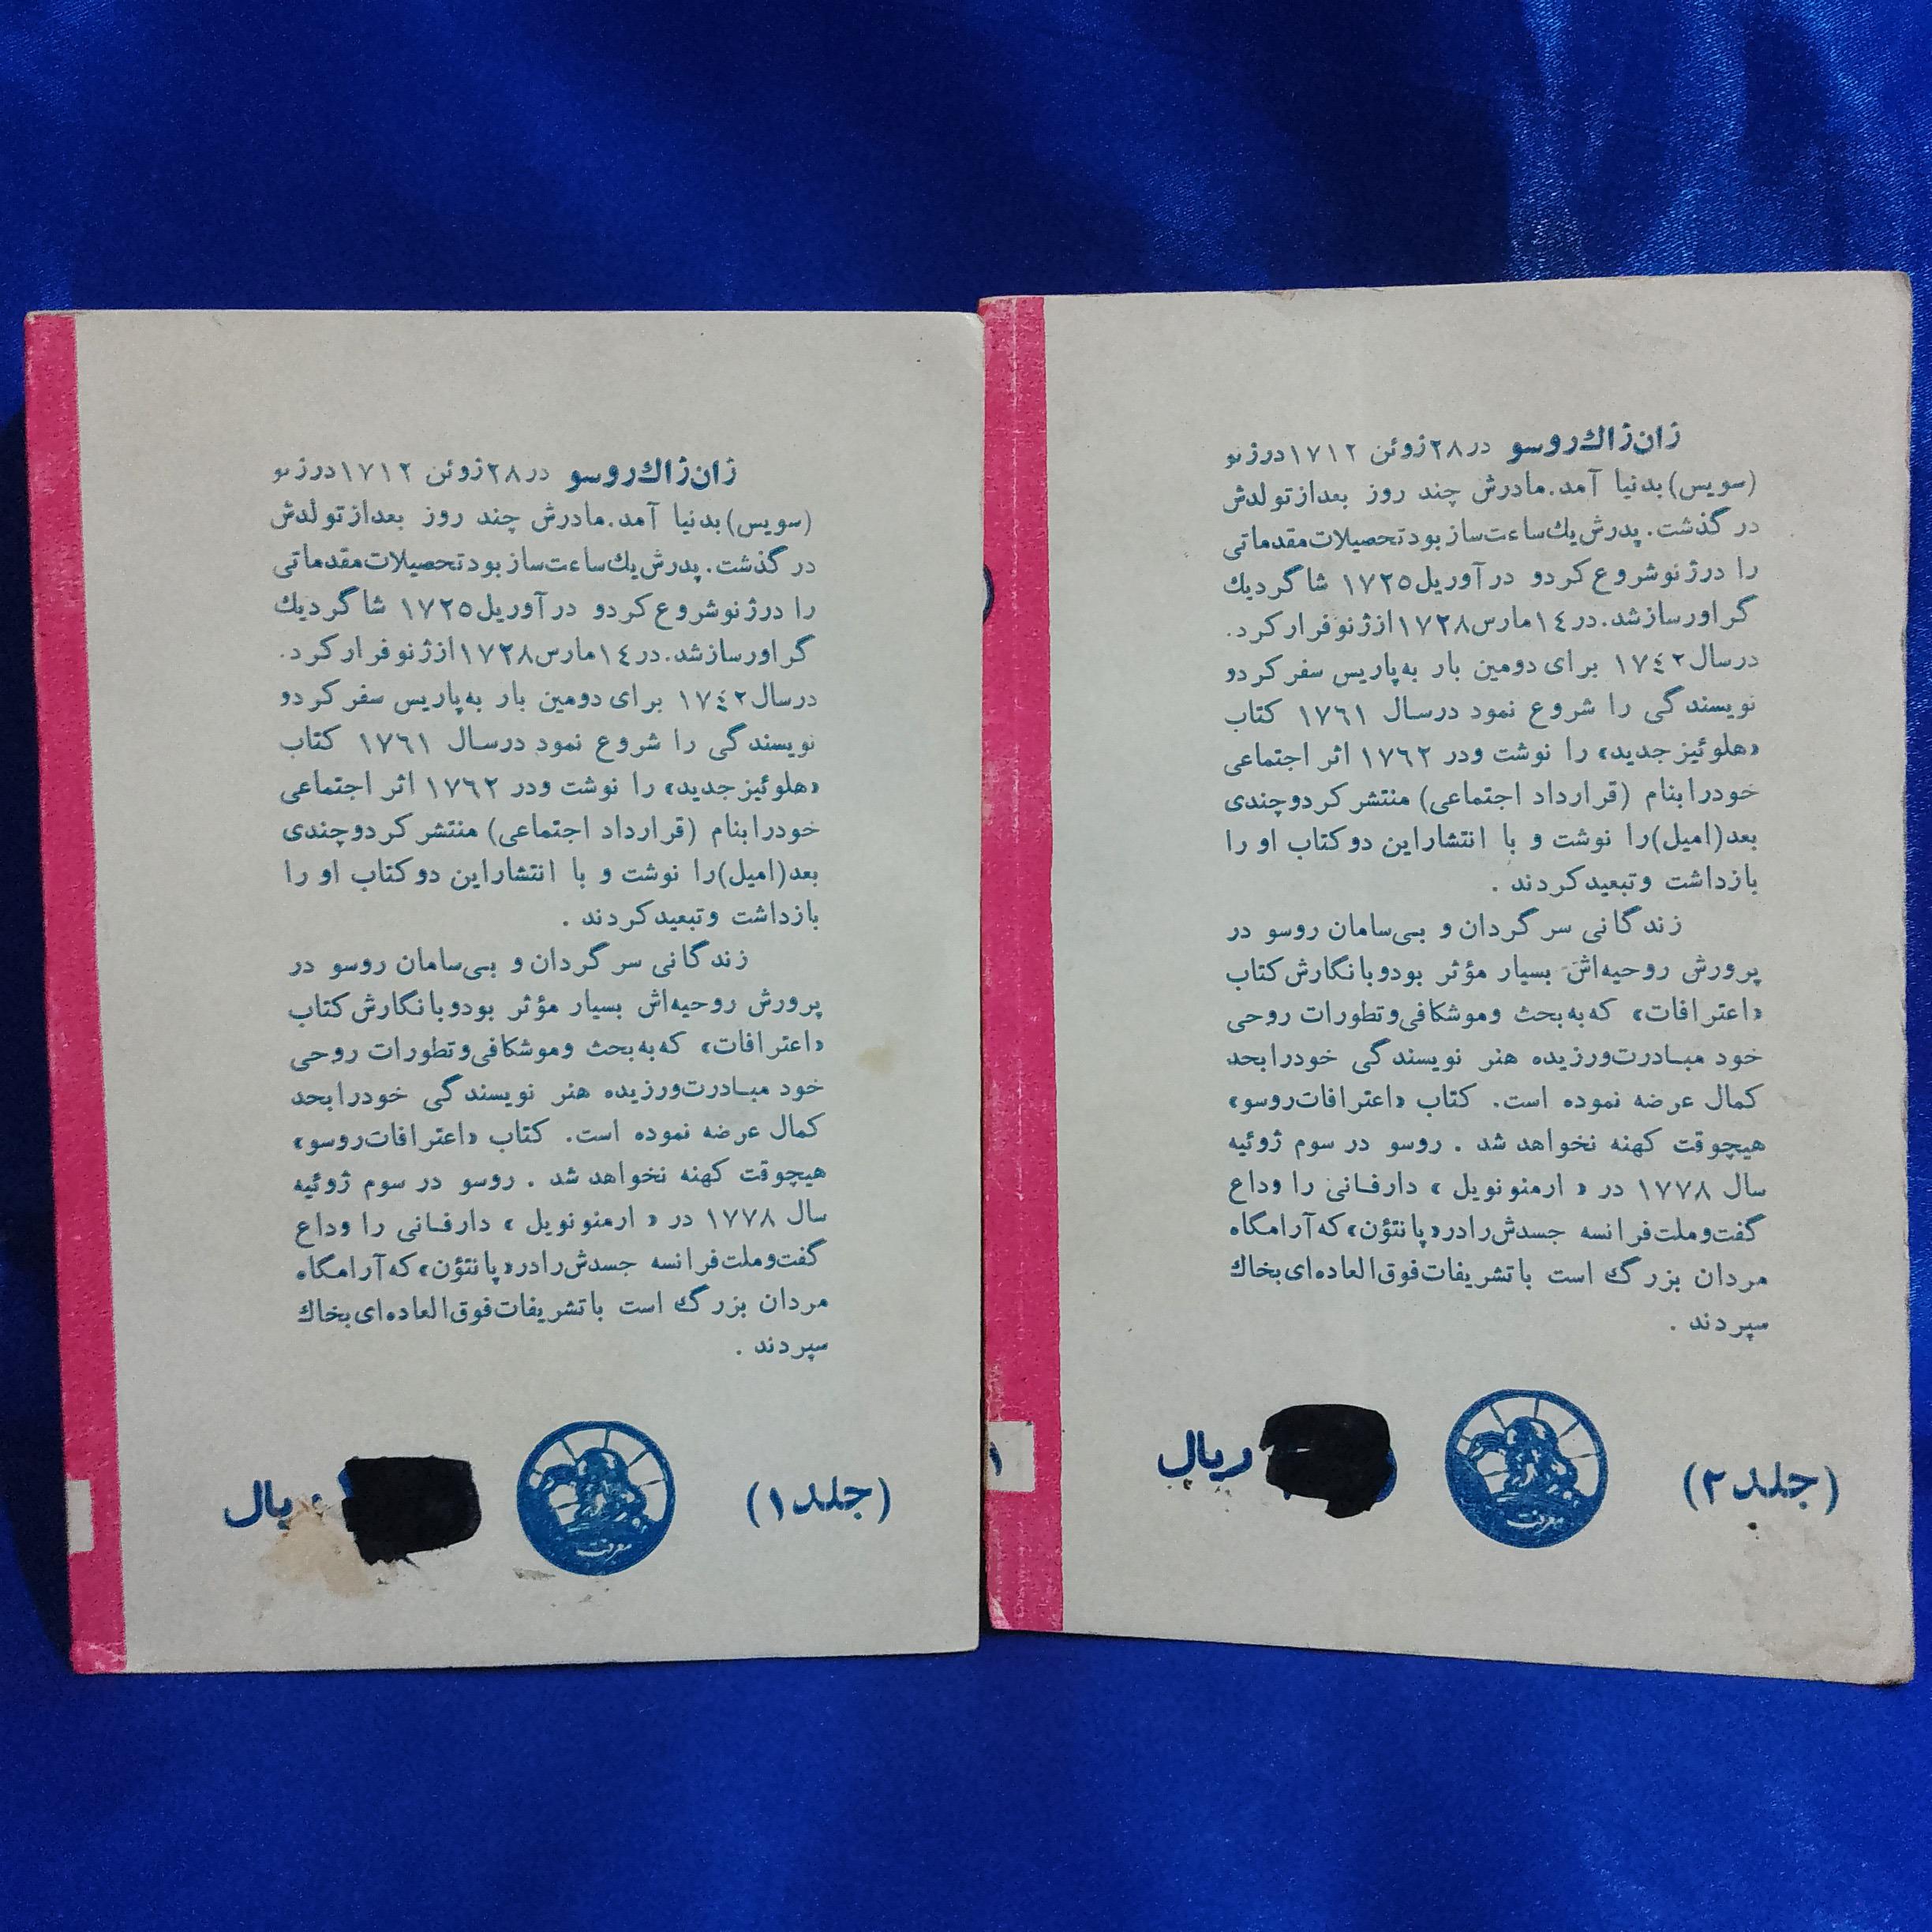 ژان ژاك روسو در ۲۸ ژوئن ۱۷۱۲ درژنو
(سویس) بدنیا آمد. مادرش چند روز بعداز تولدش
در گذشت. پدرش یك ساعت ساز بود تحصیلات مقدماتی
را درژنو شروع کرد و در آوریل ۱۷۲۵ شاگرد یك
گراورساز شد. در ۱٤ مارس ۱۷۲۸ از ژنو فرار کرد.
درسال ۱۷٤۲ برای دومین بار به پاریس سفر کرد و
نویسندگی را شروع نمود درسال ۱۷٦۱ کتاب
«هلوئیز جدید» را نوشت ودر ۱۷٦۲ اثر اجتماعی
خودرا بنام (قرارداد اجتماعی) منتشر کرد و چندی
بعد (امیل) را نوشت و با انتشار این دو کتاب او را
بازداشت و تبعید کردند .
زندگانی سرگردان و بی‌سامان روسو در
پرورش روحیه‌اش بسیار مؤثر بود و با نگارش کتاب
«اعترافات» که به بحث و موشکافی و تطورات روحی
خود مبادرت ورزیده هنر نویسندگی خودرا بحد
کمال عرضه نموده است. کتاب «اعترافات روسو»
هیچوقت کهنه نخواهد شد . روسو در سوم ژوئیه
سال ۱۷۷۸ در « ارمنونویل » دارفانی را وداع
گفت و ملت فرانسه جسدش را در «پانتؤن» که آرامگاه
مردان بزرگ است با تشریفات فوق‌العاده‌ای بخاك
سپردند .
(جلد ۲)
معرفت
ریال
۱
ژان ژاك روسو در ۲۸ ژوئن ۱۷۱۲ درژنو
(سویس) بدنیا آمد. مادرش چند روز بعداز تولدش
در گذشت. پدرش یك ساعت ساز بود تحصیلات مقدماتی
را درژنو شروع کرد و در آوریل ۱۷۲۵ شاگرد یك
گراورساز شد. در ۱٤ مارس ۱۷۲۸ از ژنو فرار کرد.
درسال ۱۷٤۲ برای دومین بار به پاریس سفر کرد و
نویسندگی را شروع نمود درسال ۱۷٦۱ کتاب
«هلوئیز جدید» را نوشت ودر ۱۷٦۲ اثر اجتماعی
خودرا بنام (قرارداد اجتماعی) منتشر کرد و چندی
بعد (امیل) را نوشت و با انتشار این دو کتاب او را
بازداشت و تبعید کردند .
زندگانی سرگردان و بی‌سامان روسو در
پرورش روحیه‌اش بسیار مؤثر بود و با نگارش کتاب
«اعترافات» که به بحث و موشکافی و تطورات روحی
خود مبادرت ورزیده هنر نویسندگی خودرا بحد
کمال عرضه نموده است. کتاب «اعترافات روسو»
هیچوقت کهنه نخواهد شد . روسو در سوم ژوئیه
سال ۱۷۷۸ در « ارمنونویل » دارفانی را وداع
گفت و ملت فرانسه جسدش را در «پانتؤن» که آرامگاه
مردان بزرگ است با تشریفات فوق‌العاده‌ای بخاك
سپردند .
(جلد ۱)
معرفت
ریال